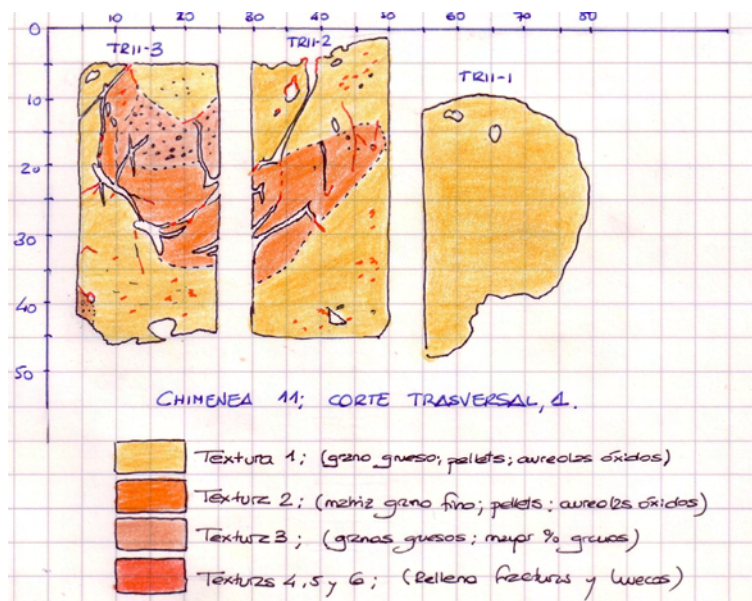 10 20 30 40 50 60 70 80
0
TR11-3
TR11-2
TR11-1
10
20
30
40
50
CHIMENEA 11; CORTE TRASVERSAL, 1.
Textura 1; (grano grueso; pellets; aureolas óxidos)
Textura 2; (matriz grano fino; pellets; aureolas óxidos)
Textura 3; (granos gruesos; mayor % granos)
Texturas 4, 5 y 6; (Relleno fracturas y huecos)